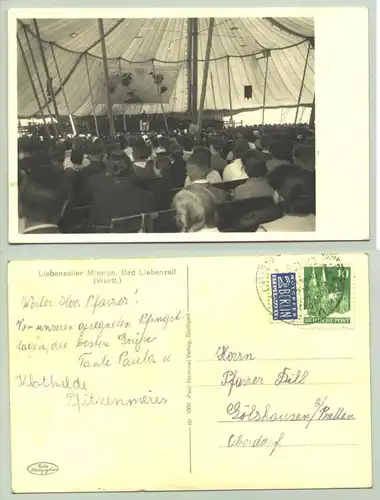 Liebenzeller Mission, Bad Liebenzell
(Württ.)
Werter Herr Pfarrer!
Von unseren gesegneten Pfingst
tagen, die besten Grüße
Tante Paula u
Klothilde
Pfitzenmeier
Nr 1039 (Paul Hommel Verlag, Stuttgart)
NOTOPFER
2 BERLIN
STEUERMARKE
10
DEUTSCHE POST
Herrn
Pfarrer Dill
Gölshausen b/Bretten
Oberdorf
Echte
Photographie